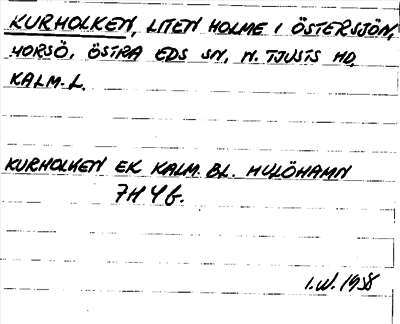 KURHOLKEN, LITEN HOLME I ÖSTERSJÖN,
HORSÖ, ÖSTRA EDS SN, N. TJUSTS HD,
KALM. L.
KURHOLMEN EK KALM. BL. HULÖHAMN
7H 4f.
I.W. 1958